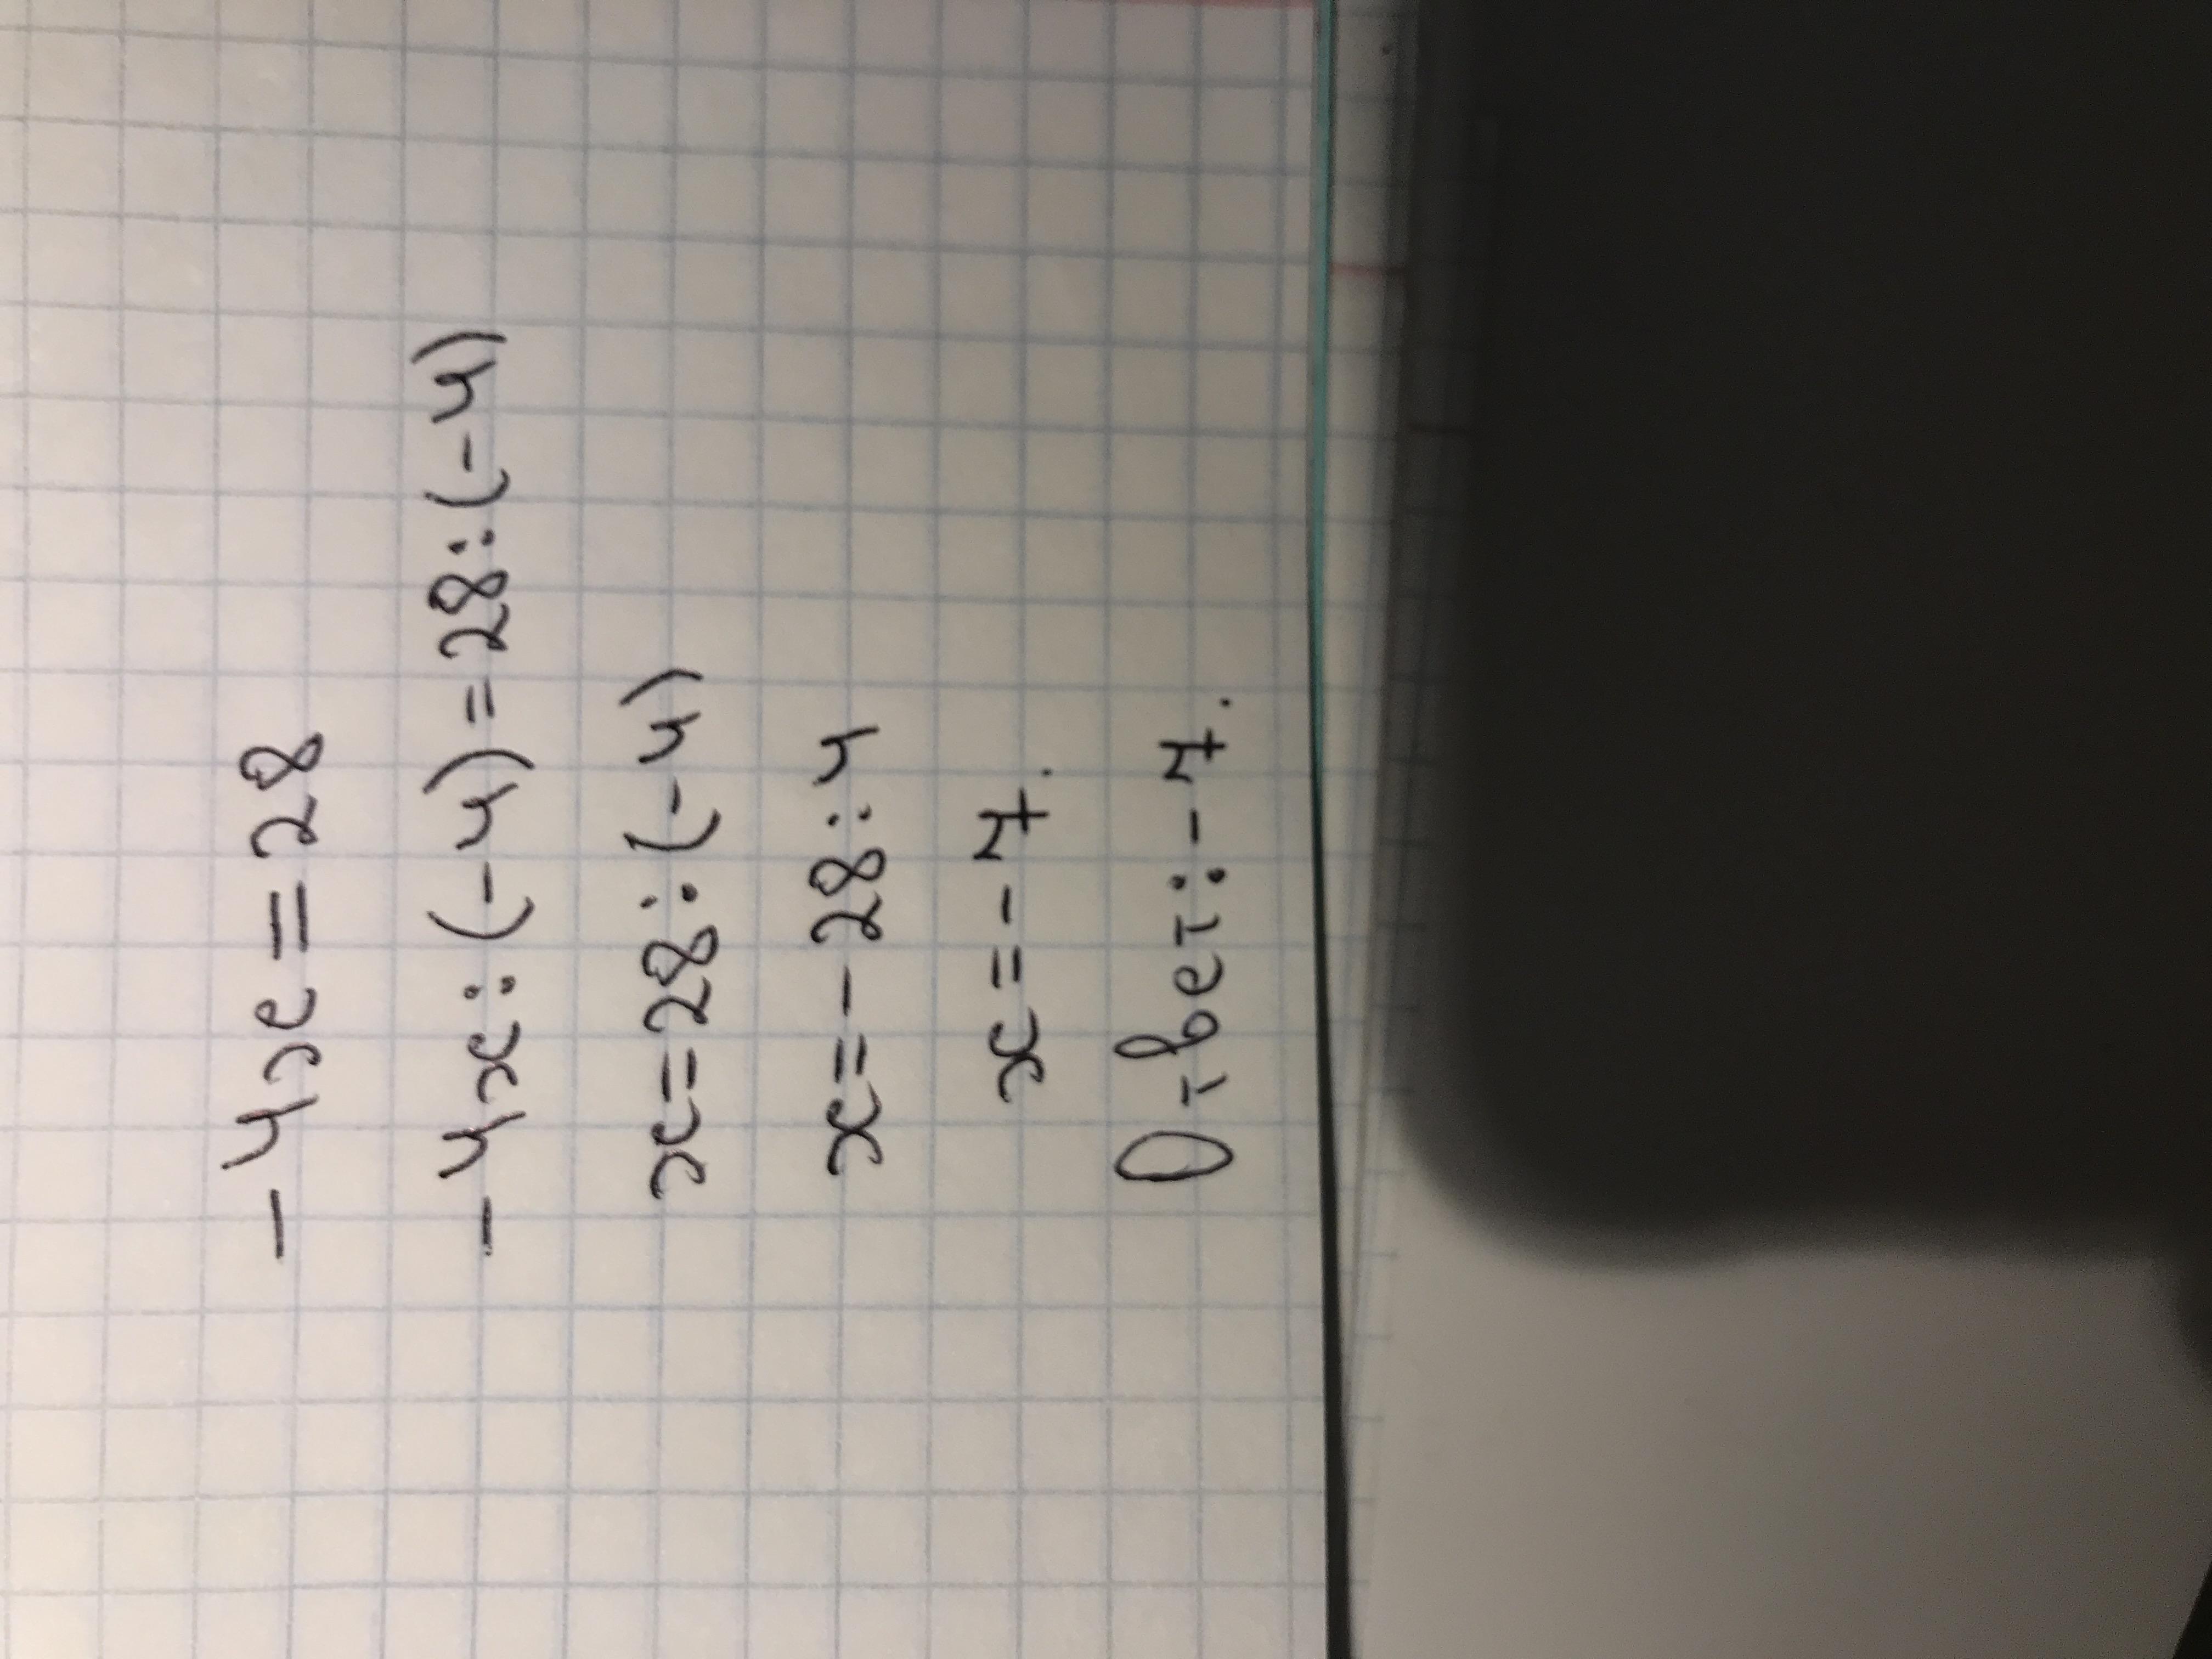 -4x=28
-4x:(-4)=28:(-4)
x=28:(-4)
x=-28:4
x=-7.
Ответ:-7.